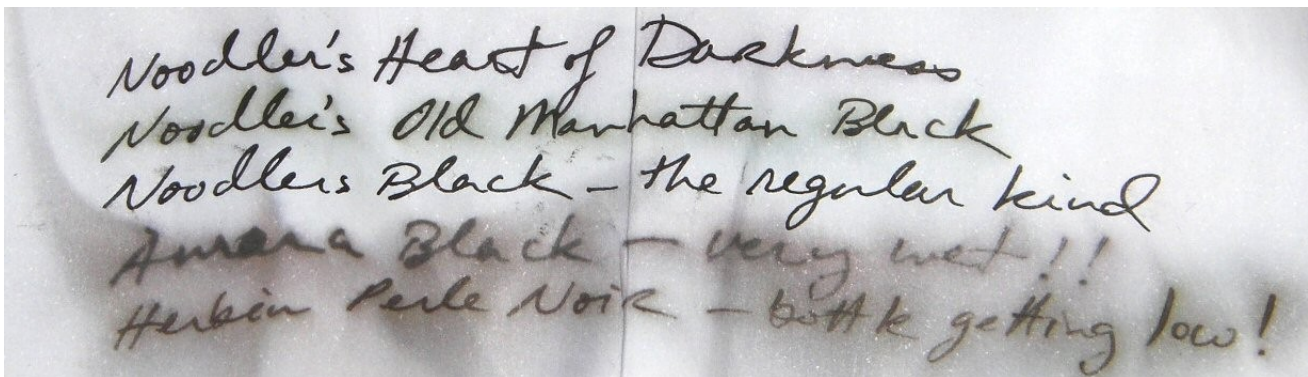 Noodler's Heart of Darkness
Noodler's Old Manhattan Black
Noodlers Black - the regular kind
Aurora Black - very wet!!
Herbin Perle Noir - bottle getting low!